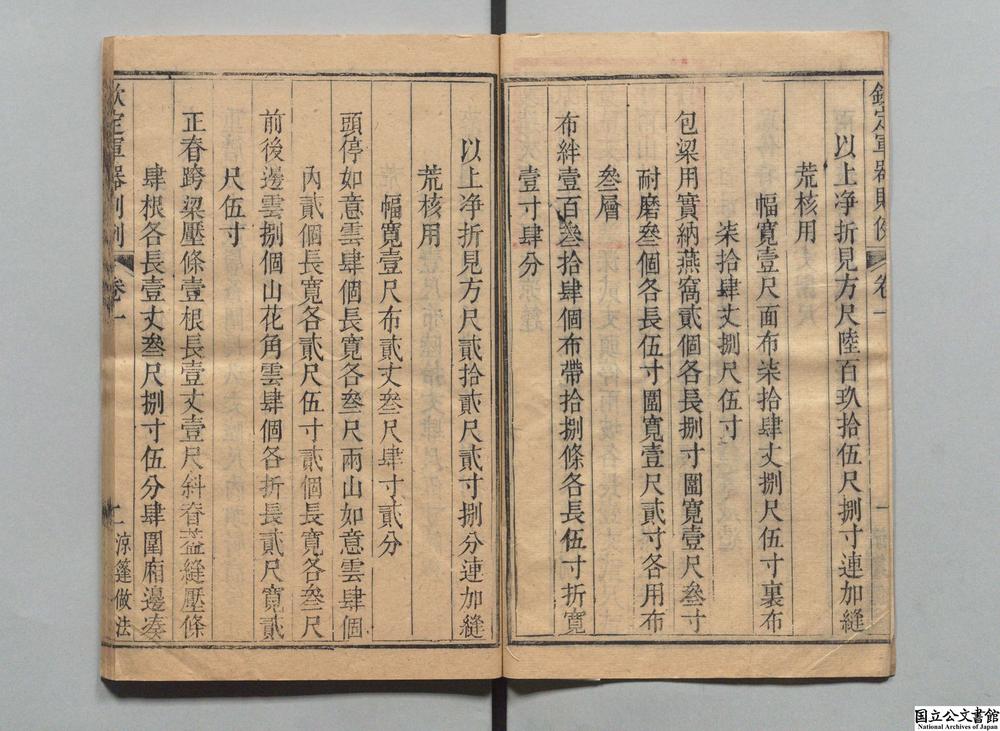 欽定軍器則例
卷一
一
以上净折見方尺陸百玖拾伍尺捌寸連加縫
荒核用
幅寬壹尺面布柒拾肆丈捌尺伍寸裏布
柒拾肆丈捌尺伍寸
包梁用實納燕窩貳個各長捌寸圍寬壹尺叁寸
耐磨叁個各長伍寸圍寬壹尺貳寸各用布
叁層
布絆壹百叁拾肆個布帶拾捌條各長伍寸折寬
壹寸肆分
以上净折見方尺貳拾貳尺貳寸捌分連加縫
荒核用
幅寬壹尺布貳丈叁尺肆寸貳分
頭停如意雲肆個長寬各叁尺兩山如意雲肆個
內貳個長寬各貳尺伍寸貳個長寬各叁尺
前後邊雲捌個山花角雲肆個各折長貳尺寬貳
尺伍寸
正脊跨梁壓條壹根長壹丈壹尺斜脊葢縫壓條
肆根各長壹丈叁尺捌寸伍分肆圍廂邊凑
欽定軍器則例
卷一
二
凉篷做法
国立公文書館
National Archives of Japan